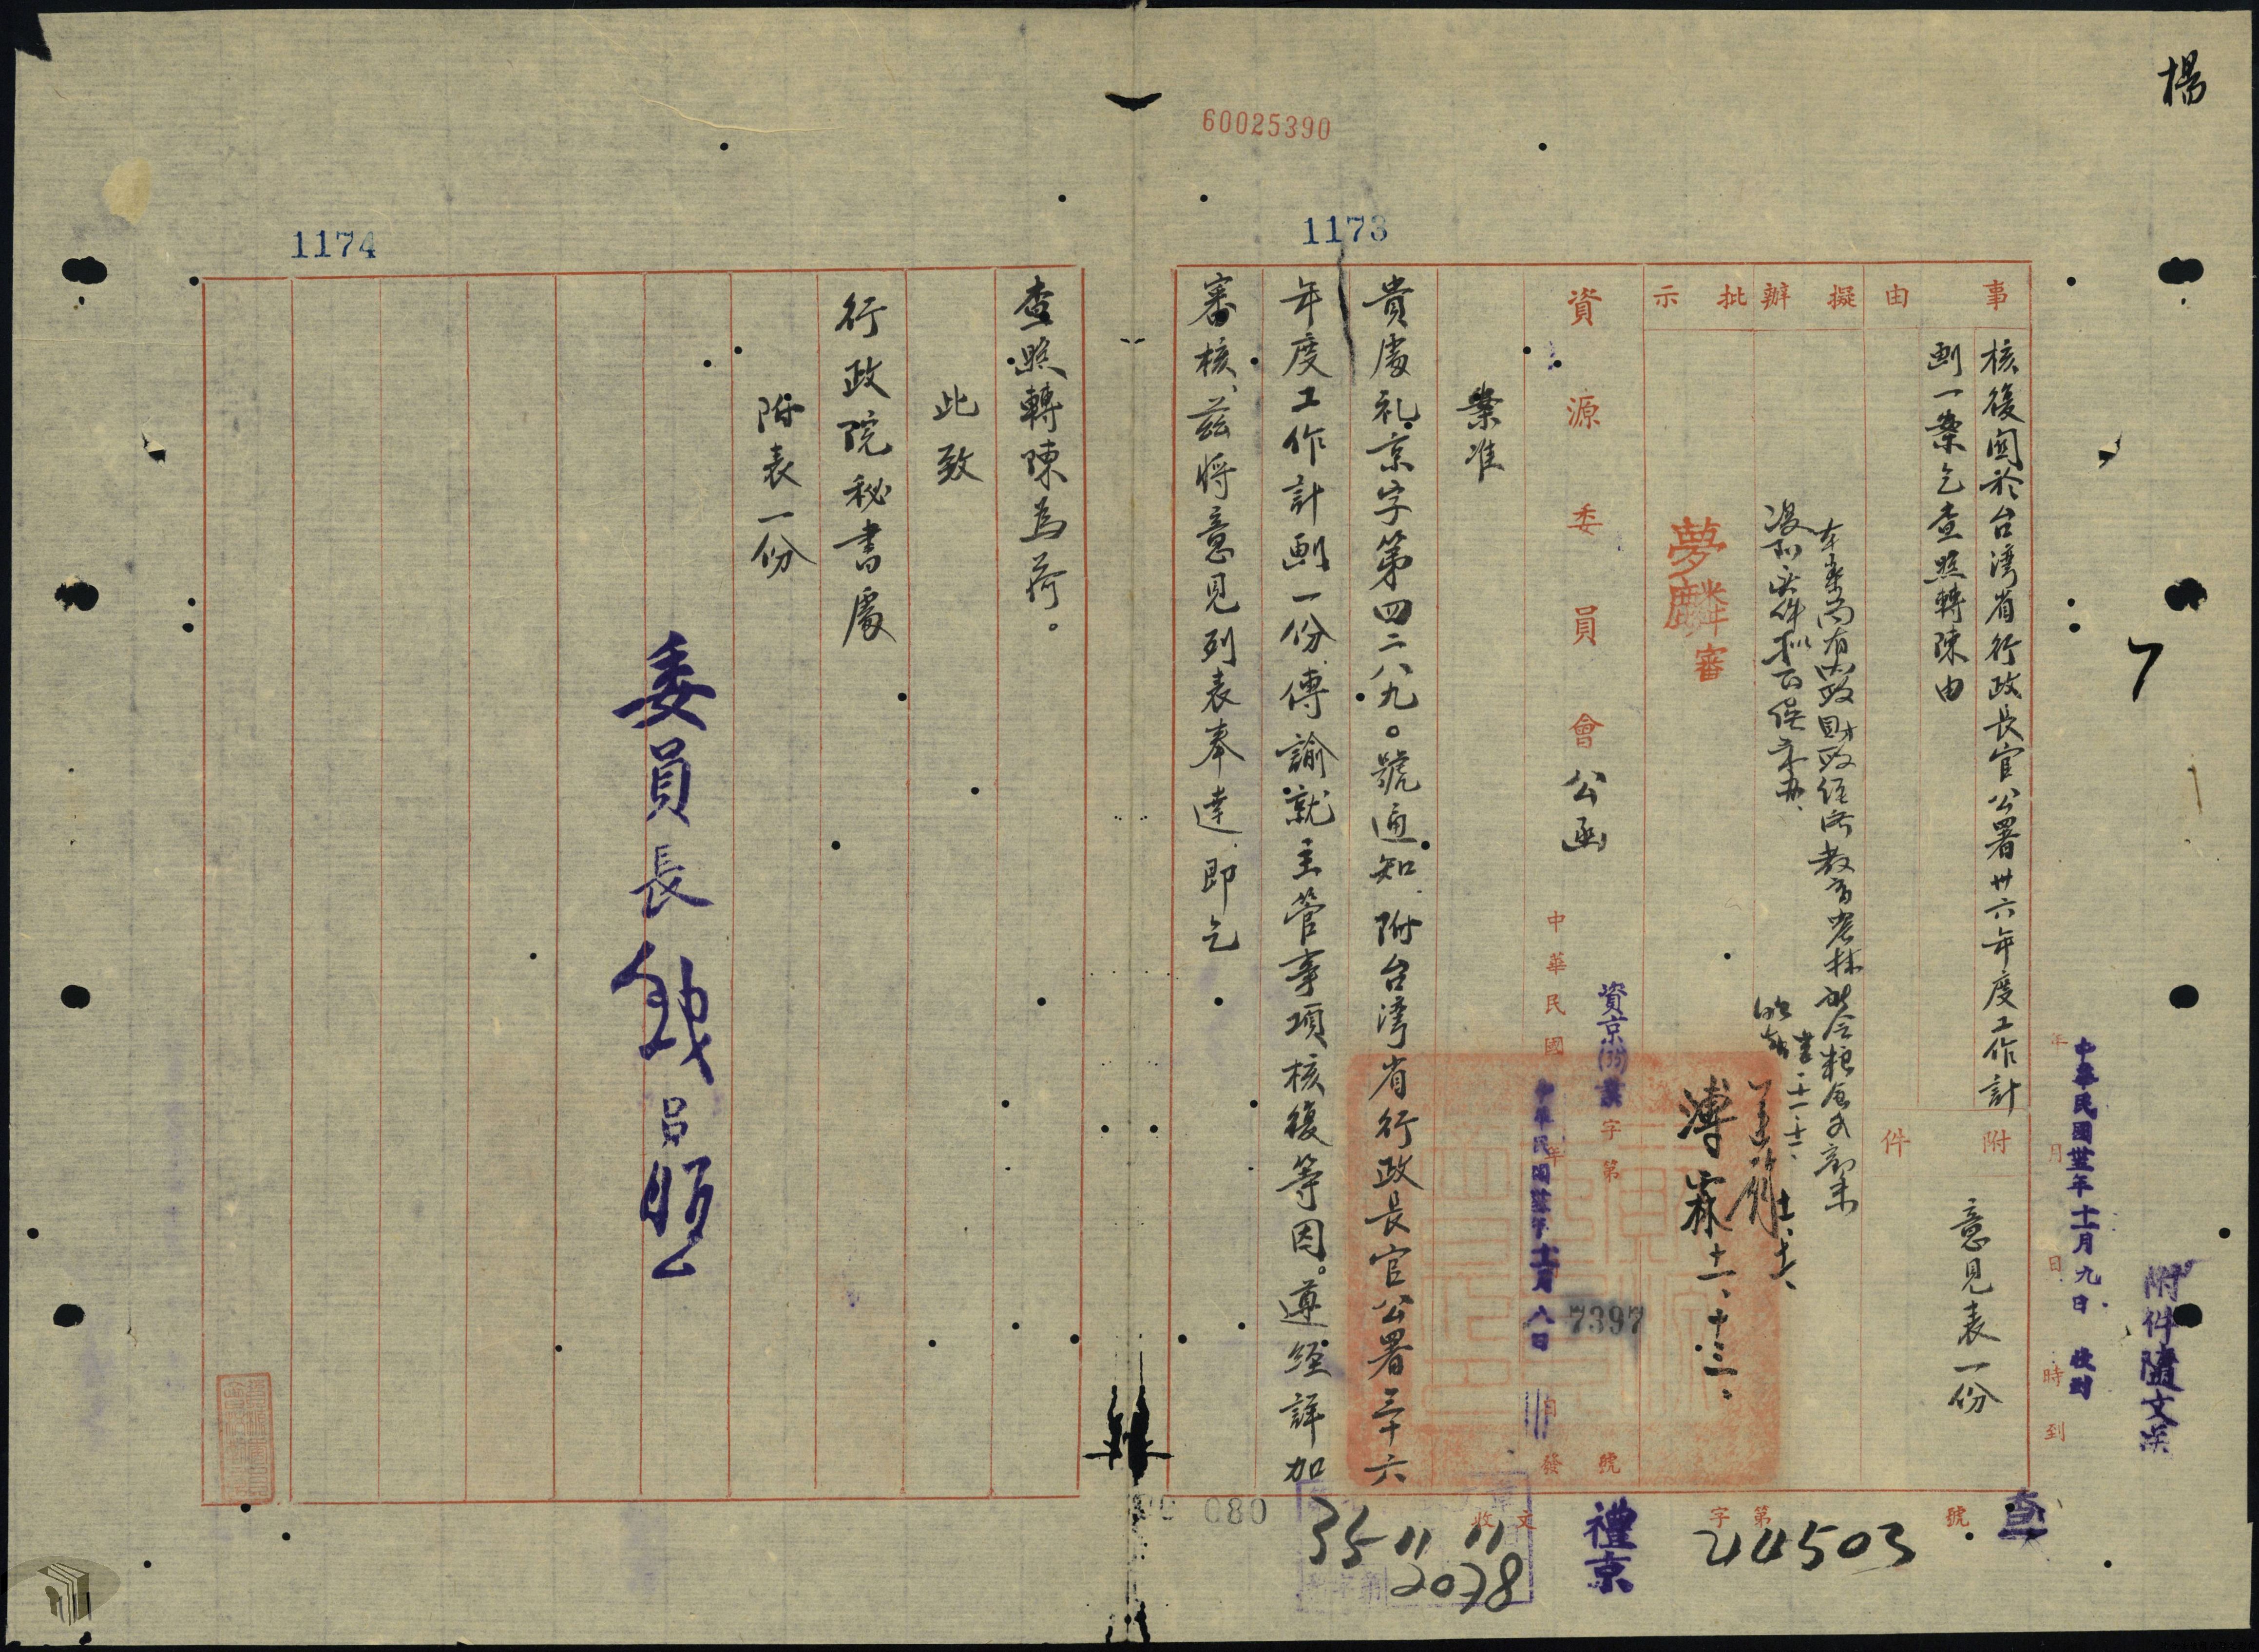 楊
60025390
1173
1174
7
附件隨文送
中華民國卅五年十一月九日 收到
年 月 日 時 到
事由
核復關於台灣省行政長官公署卅六年度工作計
劃一案乞查照轉陳由
附件
意見表一份
擬辦
本案尚有內政財政經濟教育農林
批示
夢麟審
十一、十三、
資源委員會公函
資京(35)業字第 7397 號
中華民國 年 月 日 發
中華民國卅五年十一月八日
案准
貴處礼京字第四二八九〇號通知、附台灣省行政長官公署三十六
年度工作計劃一份傳諭就主管事項核復等因。遵經詳加
審核、茲將意見列表奉達、即乞
查照轉陳為荷。
此致
行政院秘書處
附表一份
委員長錢昌照
收文 禮京 字第 44503 號
查
35 11 11
2078
080